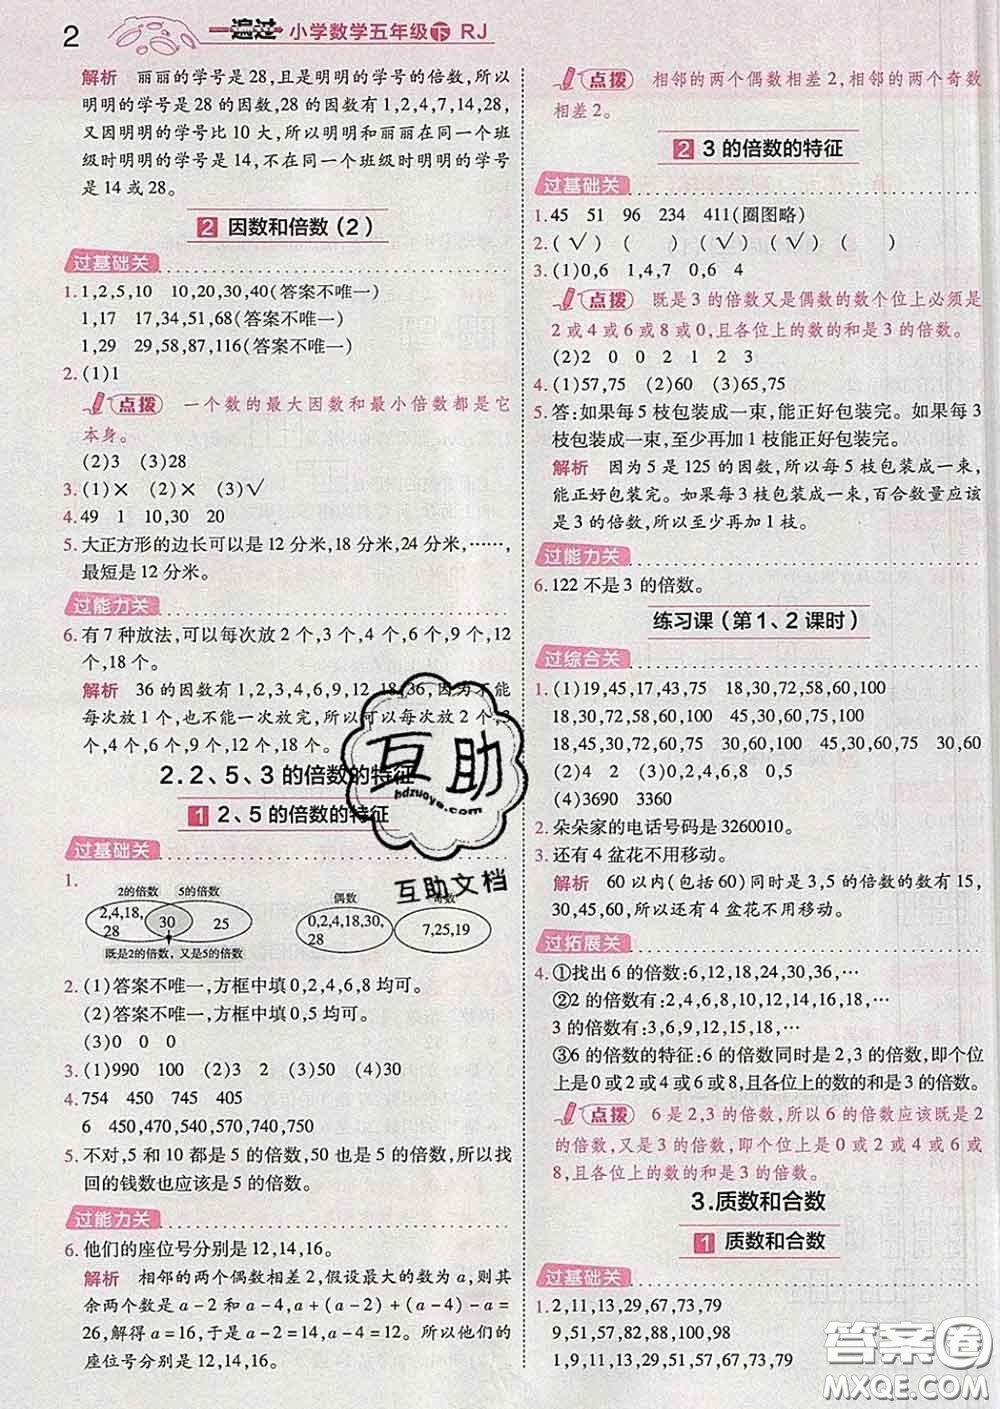 2
一遍过 小学数学五年级下 RJ
解析 丽丽的学号是28,且是明明的学号的倍数,所以
明明的学号是28的因数,28的因数有1,2,4,7,14,28,
又因明明的学号比10大,所以明明和丽丽在同一个班
级时明明的学号是14,不在同一个班级时明明的学号
是14或28。
2 因数和倍数(2)
过基础关
1.1,2,5,10 10,20,30,40(答案不唯一)
1,17 17,34,51,68(答案不唯一)
1,29 29,58,87,116(答案不唯一)
2.(1)1
点拨 一个数的最大因数和最小倍数都是它
本身。
(2)3 (3)28
3.(1)× (2)× (3)√
4.49 1 10,30 20
5.大正方形的边长可以是12分米,18分米,24分米,……,
最短是12分米。
过能力关
6.有7种放法,可以每次放2个,3个,4个,6个,9个,12
个,18个。
解析 36的因数有1,2,3,4,6,9,12,18,36,因为不能
每次放1个,也不能一次放完,所以可以每次放2个,3
个,4个,6个,9个,12个,18个。
2.2、5、3的倍数的特征
1 2、5的倍数的特征
过基础关
1.
2的倍数 5的倍数 偶数 奇数
2,4,18,28 30 25 0,2,4,18,30,28 7,25,19
既是2的倍数,又是5的倍数
2.(1)答案不唯一,方框中填0,2,4,6,8均可。
(2)答案不唯一,方框中填0,5均可。
(3)0 0 0
3.(1)990 100 (2)3 2 (3)50 (4)30
4.754 450 745 405
6 450,470,540,570,740,750
5.不对,5和10都是5的倍数,50也是5的倍数,所以找
回的钱数也应该是5的倍数。
过能力关
6.他们的座位号分别是12,14,16。
解析 相邻的两个偶数相差2,假设最大的数是a,则其
余两个数是a-2和a-4,a+(a-2)+(a-4)-a=
26,解得a=16,于是a-2=14,a-4=12。所以他们的
座位号分别是12,14,16。
点拨 相邻的两个偶数相差2,相邻的两个奇数
相差2。
2 3的倍数的特征
过基础关
1.45 51 96 234 411(圈图略)
2.(√) ( ) (√) (√) ( )
3.(1)0,6 1,4,7 0,6 4
点拨 既是3的倍数又是偶数的数个位上必须是
2或4或6或8或0,且各位上的数的和是3的倍数。
(2)2 0 0 2 1 2 3
4.(1)57,75 (2)60 (3)65,75
5.答:如果每5枝包装成一束,能正好包装完。如果每3
枝包装成一束,至少再加1枝能正好包装完。
解析 因为5是125的因数,所以每5枝包装成一束,
能正好包装完。如果每3枝包装成一束,百合数量应该
是3的倍数,所以至少再加1枝。
过能力关
6.122不是3的倍数。
练习课(第1、2课时)
过综合关
1.(1)19,45,17,43,75 18,30,72,58,60,100
18,30,72,58,60,100 45,30,60,75,100
18,72,30,45,60,75 30,60,100 45,30,60,75 30,60
(2)4 2 (3)120 990
(4)3690 3360
2.朵朵家的电话号码是3260010。
3.还有4盆花不用移动。
解析 60以内(包括60)同时是3,5的倍数的数有15,
30,45,60,所以还有4盆花不用移动。
过拓展关
4.①找出6的倍数:6,12,18,24,30,36,…
②2的倍数有:2,4,6,8,10,12,14,16,18,…
3的倍数有:3,6,9,12,15,18,…
③6的倍数的特征:6的倍数同时是2,3的倍数,即个位
上是0或2或4或6或8,且各位上的数的和是3的倍数。
点拨 6是2,3的倍数,所以6的倍数应该既是2
的倍数,又是3的倍数,即个位上是0或2或4或6或
8,且各位上的数的和是3的倍数。
3.质数和合数
1 质数和合数
过基础关
1.2,11,13,29,67,73,79
9,51,57,87,91,93,98
1,9,11,13,29,51,57,67,73,79
互助
hdzuoye.com
互助文档
答案圈
MXQE.COM